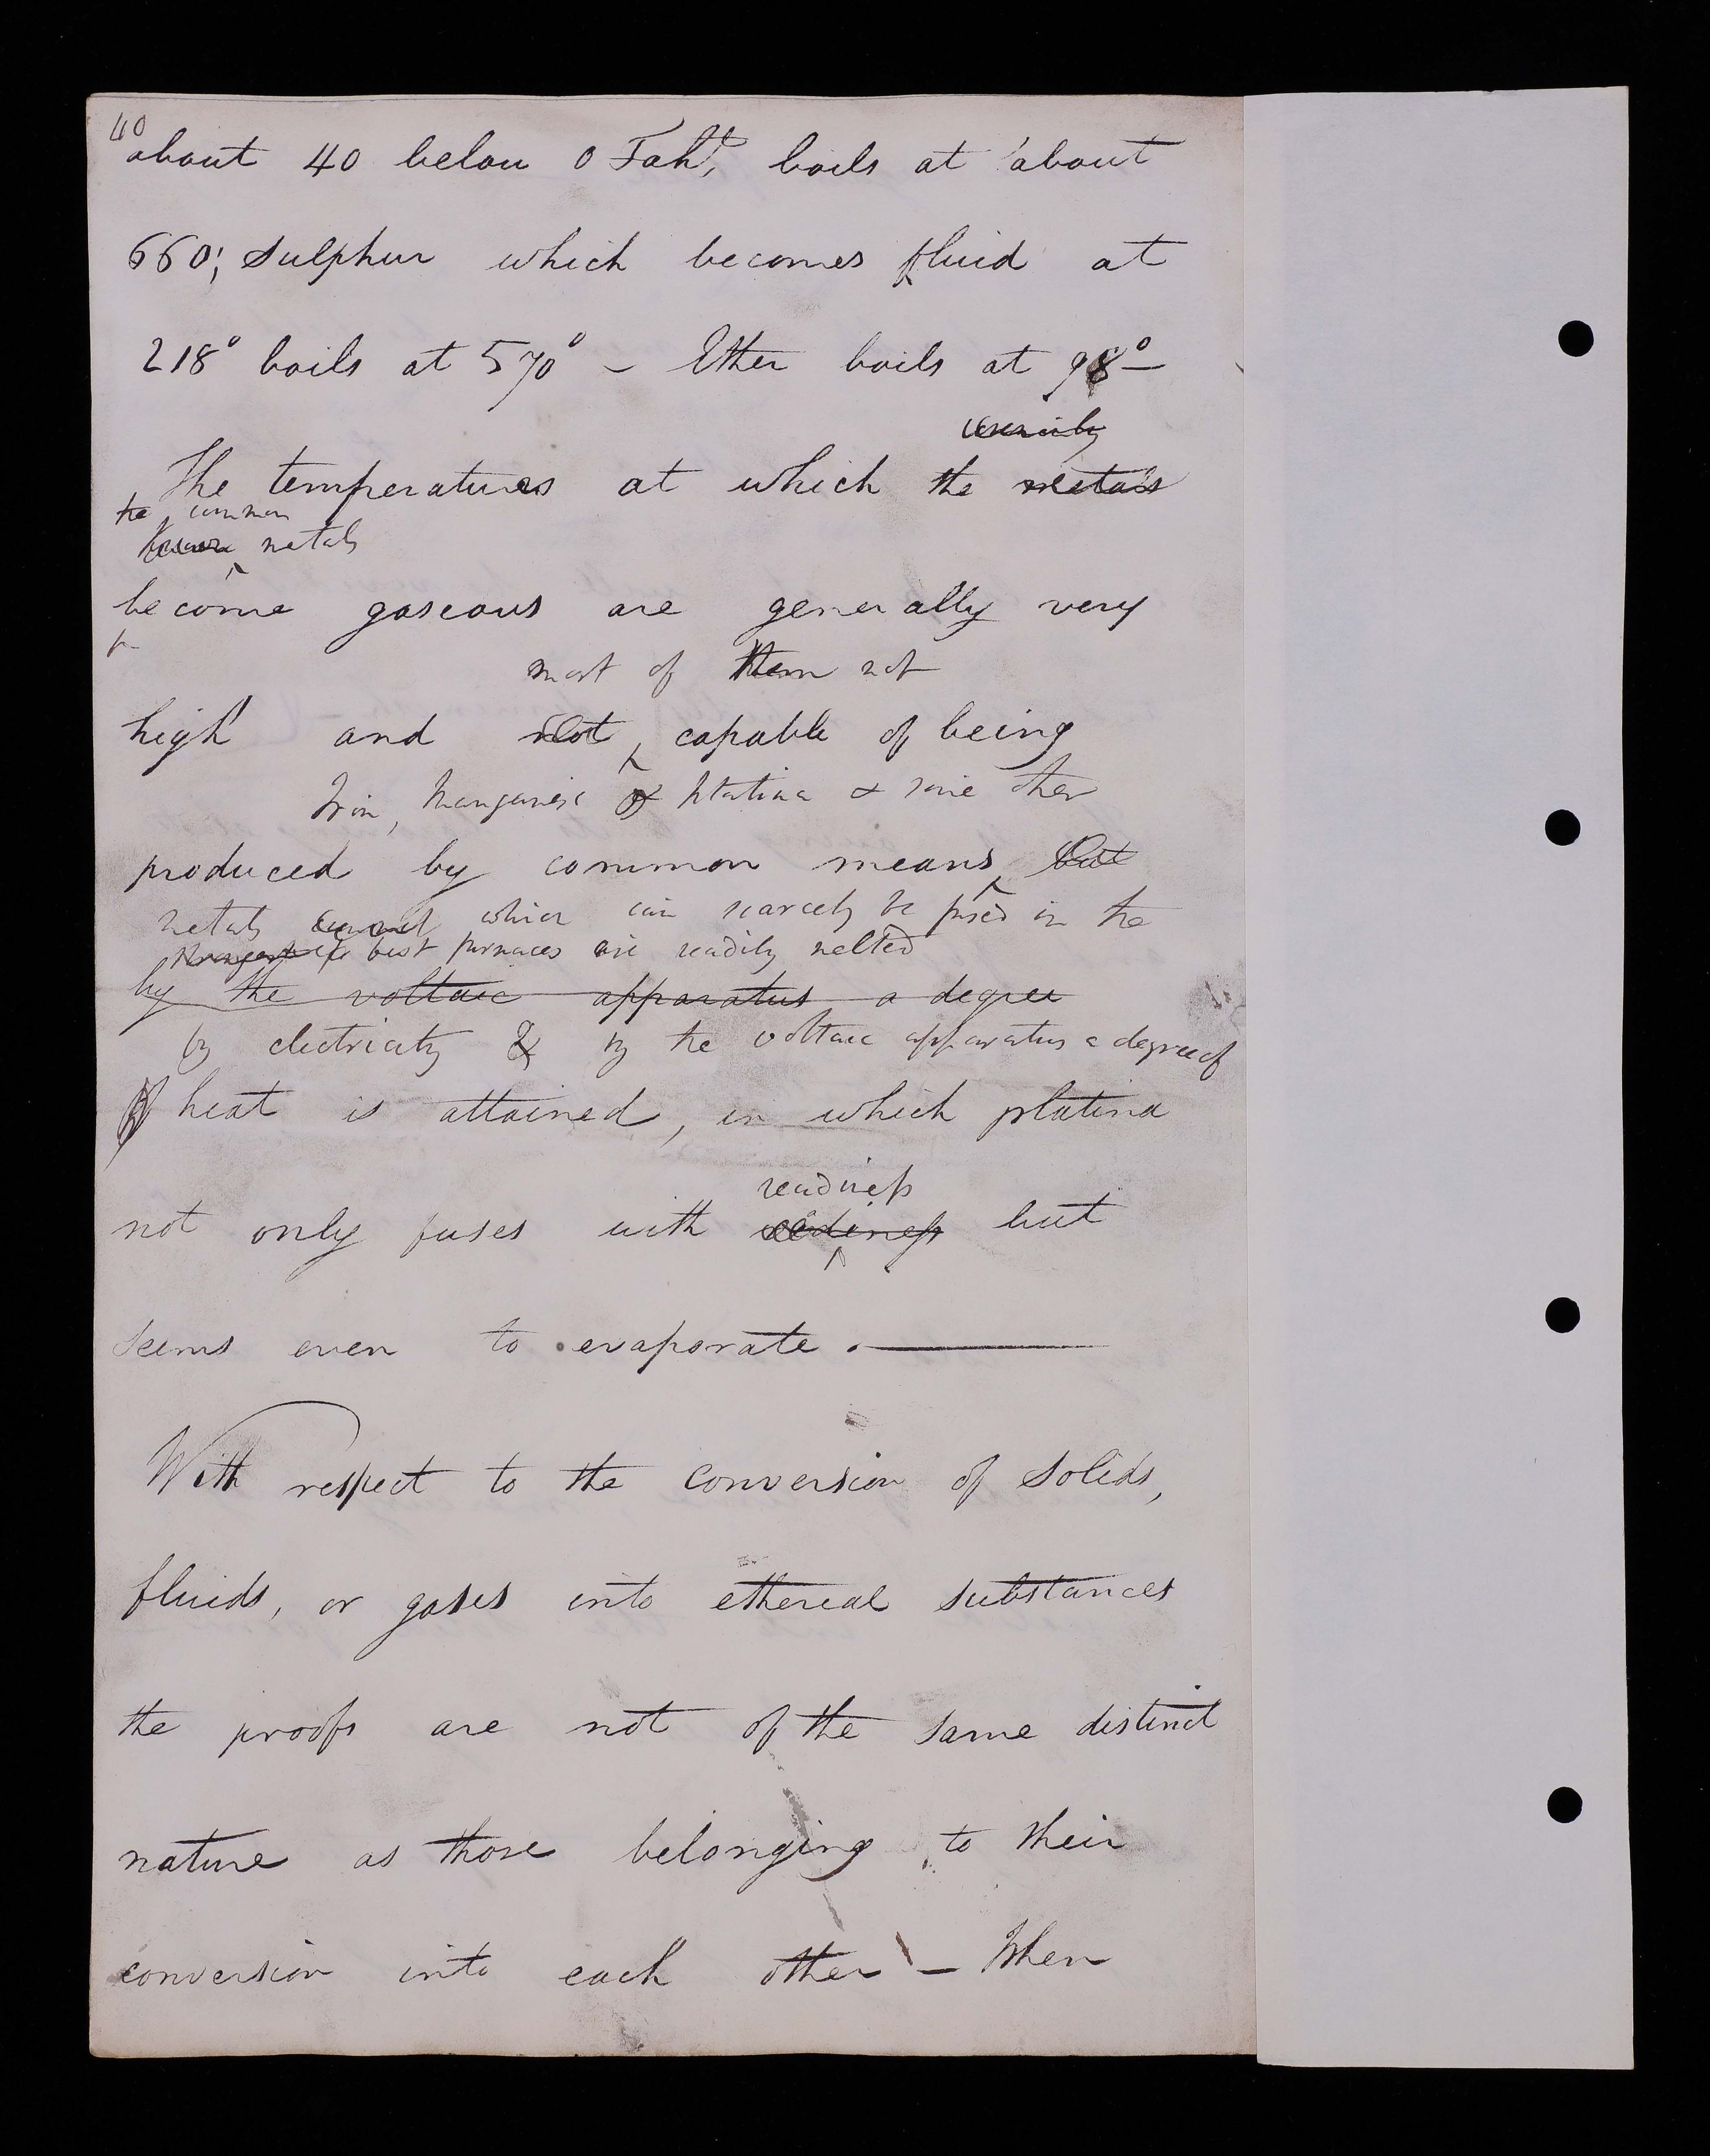 40
about 40 below 0 Faht, boils at about
660; Sulphur which becomes fluid at
218° boils at 570° – Ether boils at 98° –
The temperatures at which the metals
the common
metals
become gaseous are generally very
most of them not
high and not capable of being
Iron, Manganese & platina & some other
produced by common means, but
metals which can scarcely be fused in the
best furnaces are readily melted
by the voltaic apparatus a degree
by electricity & by the voltaic apparatus a degree of
of heat is attained, in which platina
readiness
not only fuses with rediness but
seems even to evaporate. —
With respect to the conversion of solids,
fluids, or gases into ethereal substances
the proofs are not of the same distinct
nature as those belonging to their
conversion into each other – When